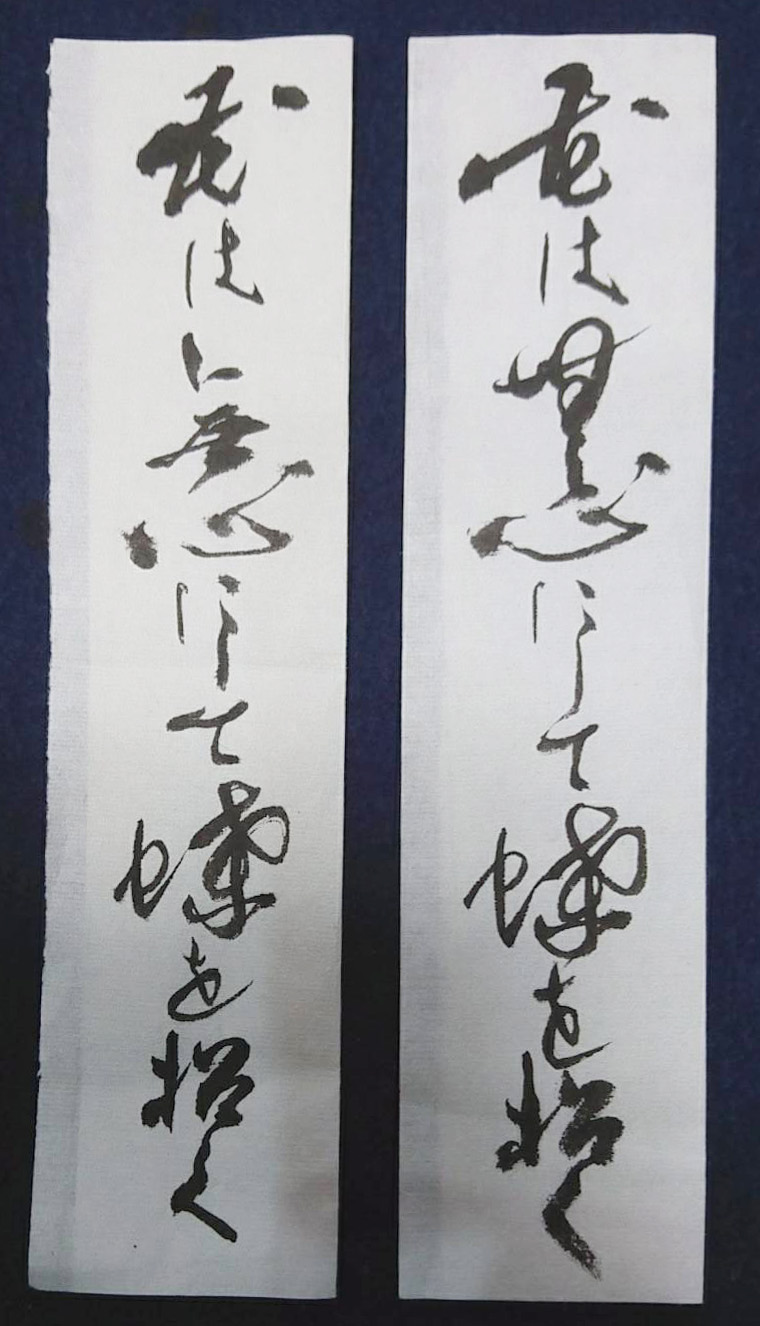 花は無心にして蝶を招く
花は無心にして蝶を招く